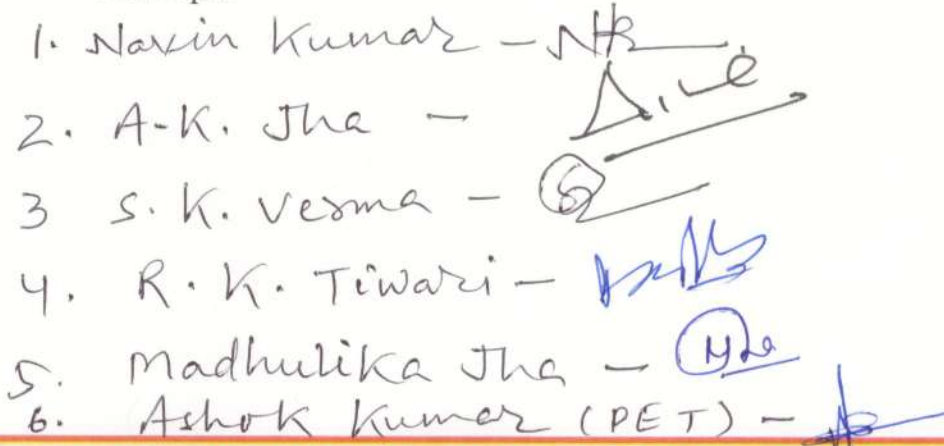 1. Navin Kumar -
2. A-K. Jha -
3 S. K. Verma -
4. R. K. Tiwari -
5. Madhulika Jha -
6. Ashok Kumar (PET) -